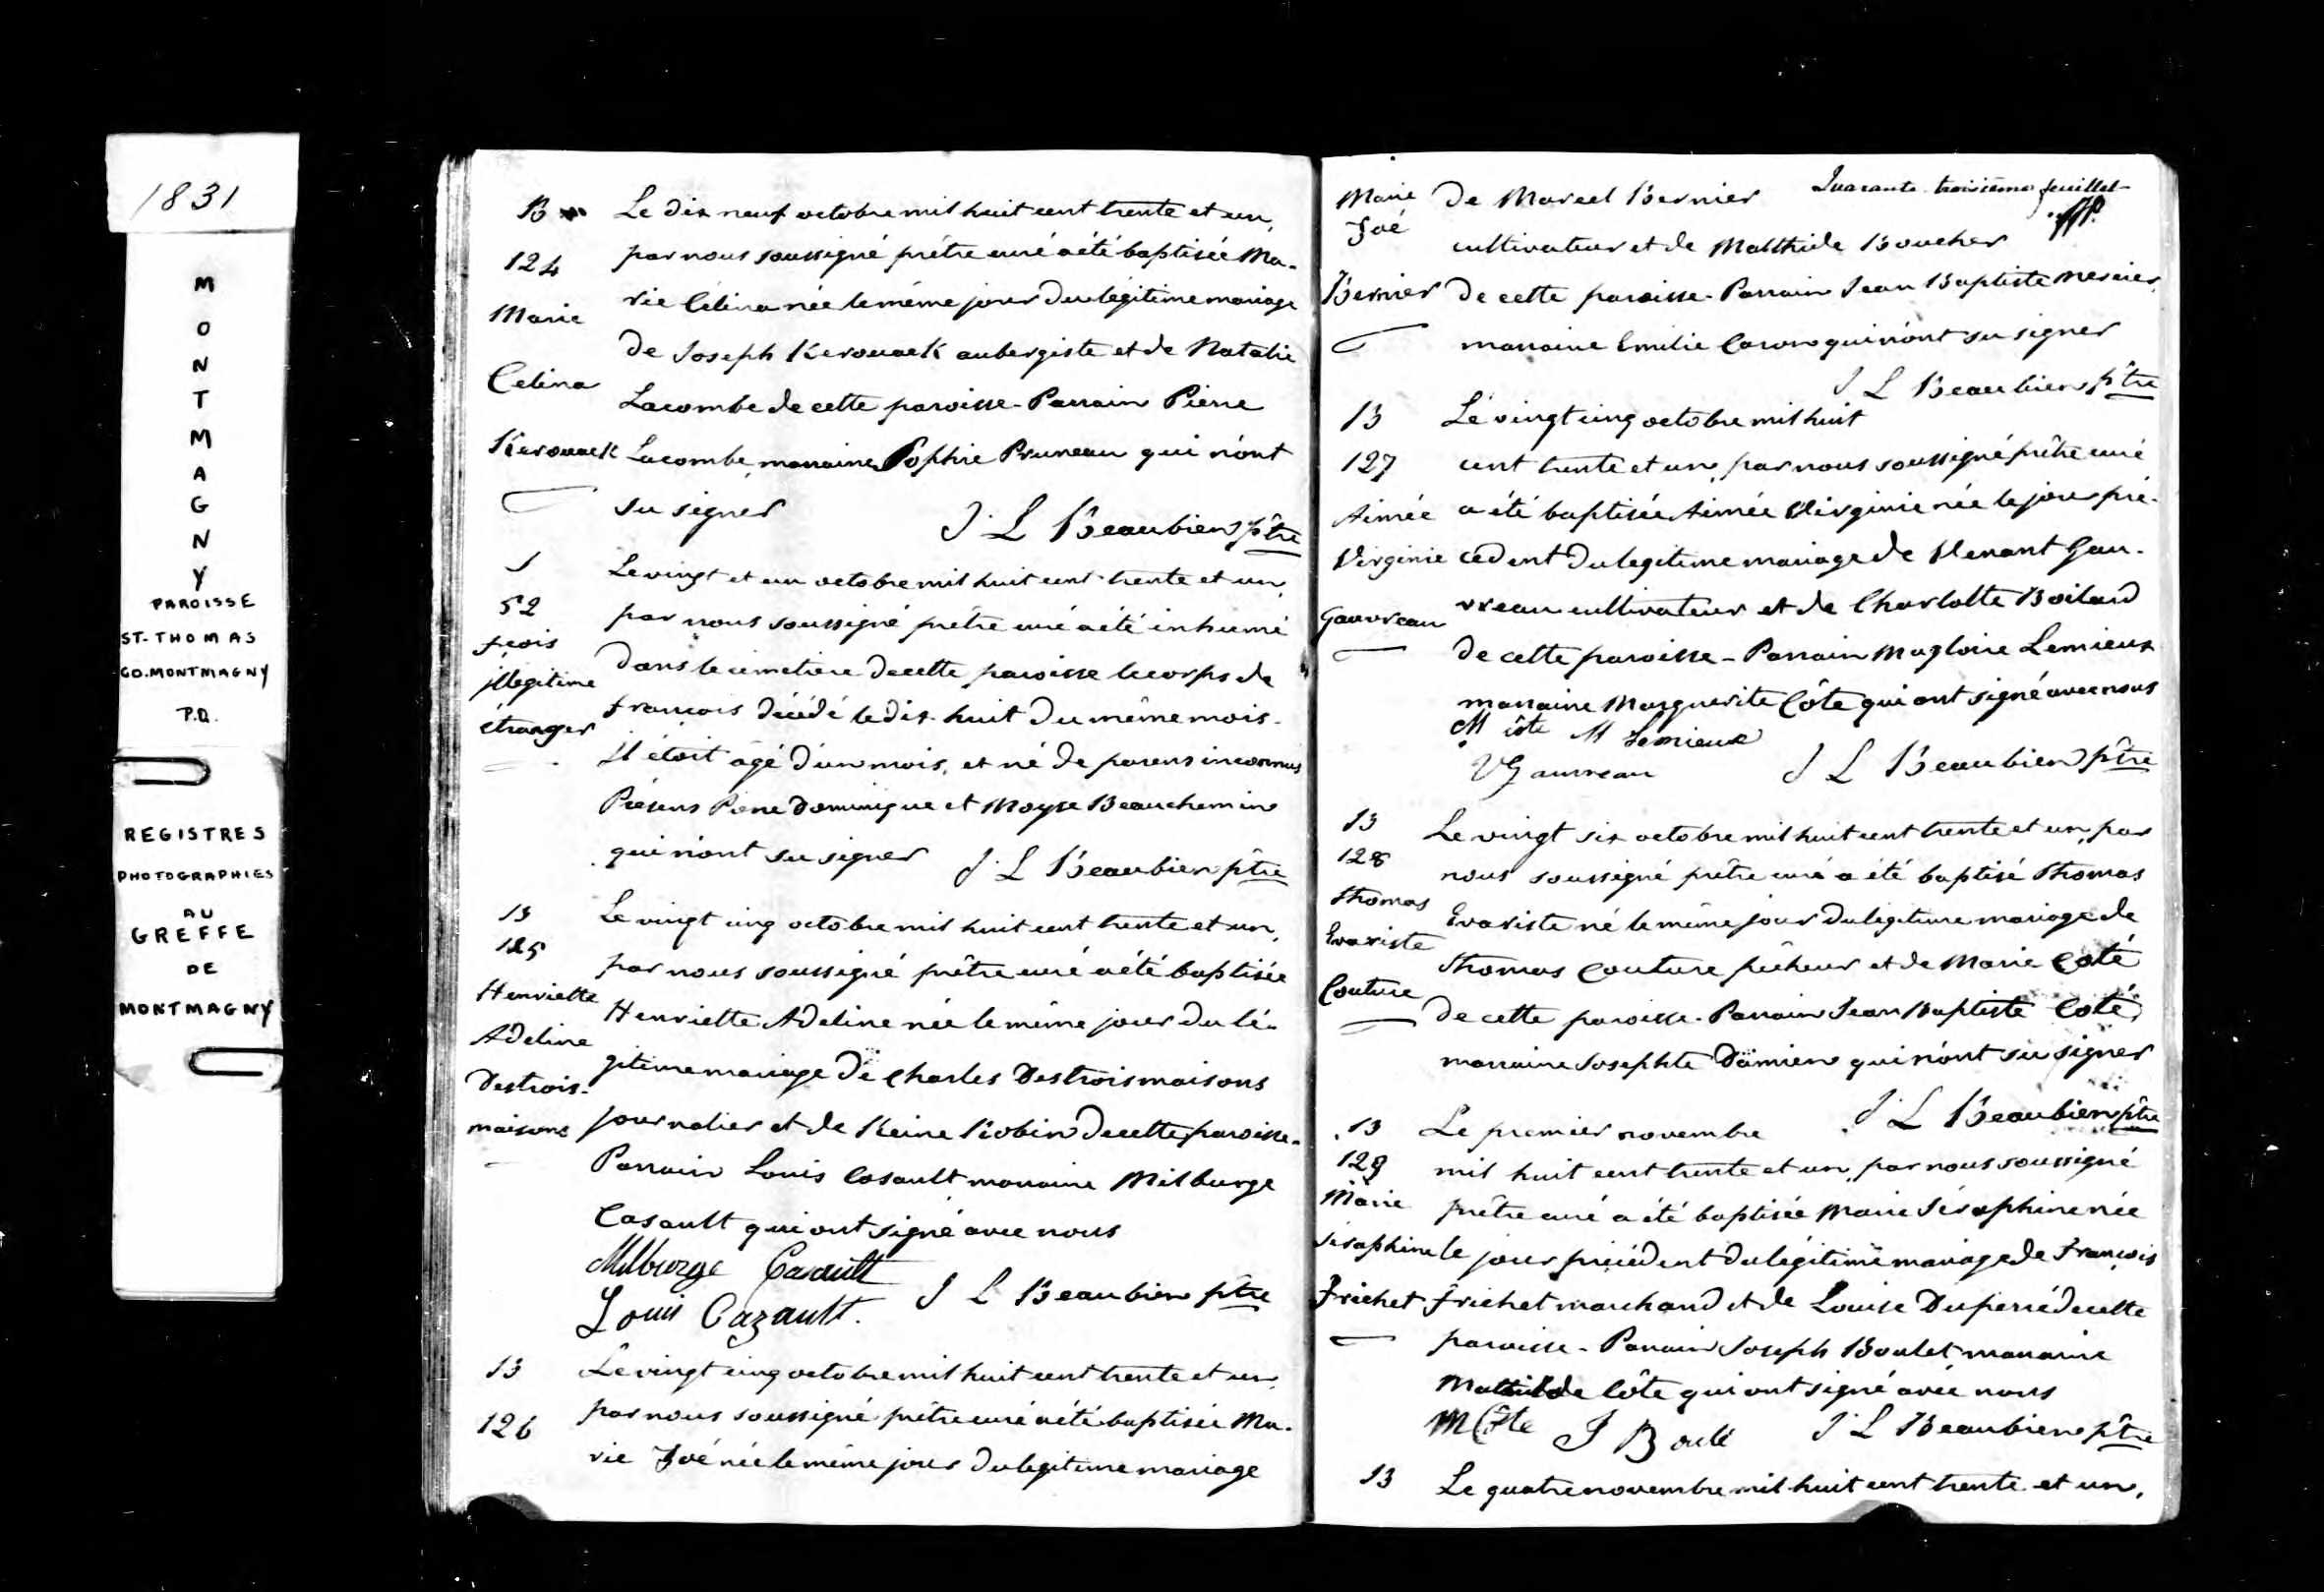 1831
MONTMAGNY
PAROISSE
ST-THOMAS
CO. MONTMAGNY
P.Q.
REGISTRES
PHOTOGRAPHIES
AU
GREFFE
DE
MONTMAGNY
B
124
Marie
Celina
Kerouack
Le dix neuf octobre mil huit cent trente et un,
par nous soussigné prêtre curé a été baptisée Ma-
rie Célina née le même jour du légitime mariage
de Joseph Kerouack aubergiste et de Natalie
Lacombe de cette paroisse - Parrain Pierre
Lacombe, marraine Sophie Pruneau qui n'ont
su signer J. L Beaubien ptre
S
52
fçois
illegitime
étranger
Le vingt et un octobre mil huit cent trente et un,
par nous soussigné prêtre curé a été inhumé
dans le cimetiere de cette paroisse le corps de
françois décédé le dix-huit du même mois -
il étoit agé d'un mois, et né de parens inconnus
Présens Pierre Dominique et Moyse Beauchemin
qui n'ont su signer J. L Beaubien ptre
B
125
Henriette
Adeline
Destrois-
maisons
Le vingt cinq octobre mil huit cent trente et un,
par nous soussigné prêtre curé a été baptisée
Henriette Adeline née le même jour du lé-
gitime mariage de Charles Destroismaisons
journalier et de Reine Robin de cette paroisse -
Parrain Louis Casault marraine Milburge
Casault qui ont signé avec nous
Milburge Casault
Louis Cazault. J L Beaubien ptre
B
126
Le vingt cinq octobre mil huit cent trente et un,
par nous soussigné prêtre curé a été baptisée Ma-
rie Zoé née le même jour du legitime mariage
Quarante troisième feuillet
Marie
Zoé
Bernier
de Marcel Bernier
cultivateur et de Matthilde Boucher
de cette paroisse - Parrain Jean Baptiste Mercier,
marraine Emilie Caron qui n'ont su signer
J L Beaubien ptre
B
127
Aimée
Virginie
Gauvreau
Le vingt cinq octobre mil huit
cent trente et un, par nous soussigné prêtre curé
a été baptisée Aimée Virginie née le jour pré-
cédent du legitime mariage de Venant Gau-
vreau cultivateur et de Charlotte Boilard
de cette paroisse - Parrain Magloire Lemieux
marraine Marguerite Côte qui ont signé avec nous
M Côte M Lemieux
V Gauvreau J L Beaubien ptre
B
128
Thomas
Evariste
Couture
Le vingt six octobre mil huit cent trente et un, par
nous soussigné prêtre curé a été baptisé Thomas
Evariste né le même jour du legitime mariage de
Thomas Couture pêcheur et de Marie Coté
de cette paroisse - Parrain Jean Baptiste Coté,
marraine Josephte Damien qui n'ont su signer
J. L Beaubien ptre
B
129
Marie
Séraphine
Frichet
Le premier novembre
mil huit cent trente et un, par nous soussigné
prêtre curé a été baptisée Marie Séraphine née
le jour précédent du légitime mariage de François
Frichet marchand et de Louise Duperré de cette
paroisse - Parrain Joseph Boulet marraine
Mathilde Côte qui ont signé avec nous
M Côte J Boulé J L Beaubien ptre
B
Le quatre novembre mil huit cent trente et un,